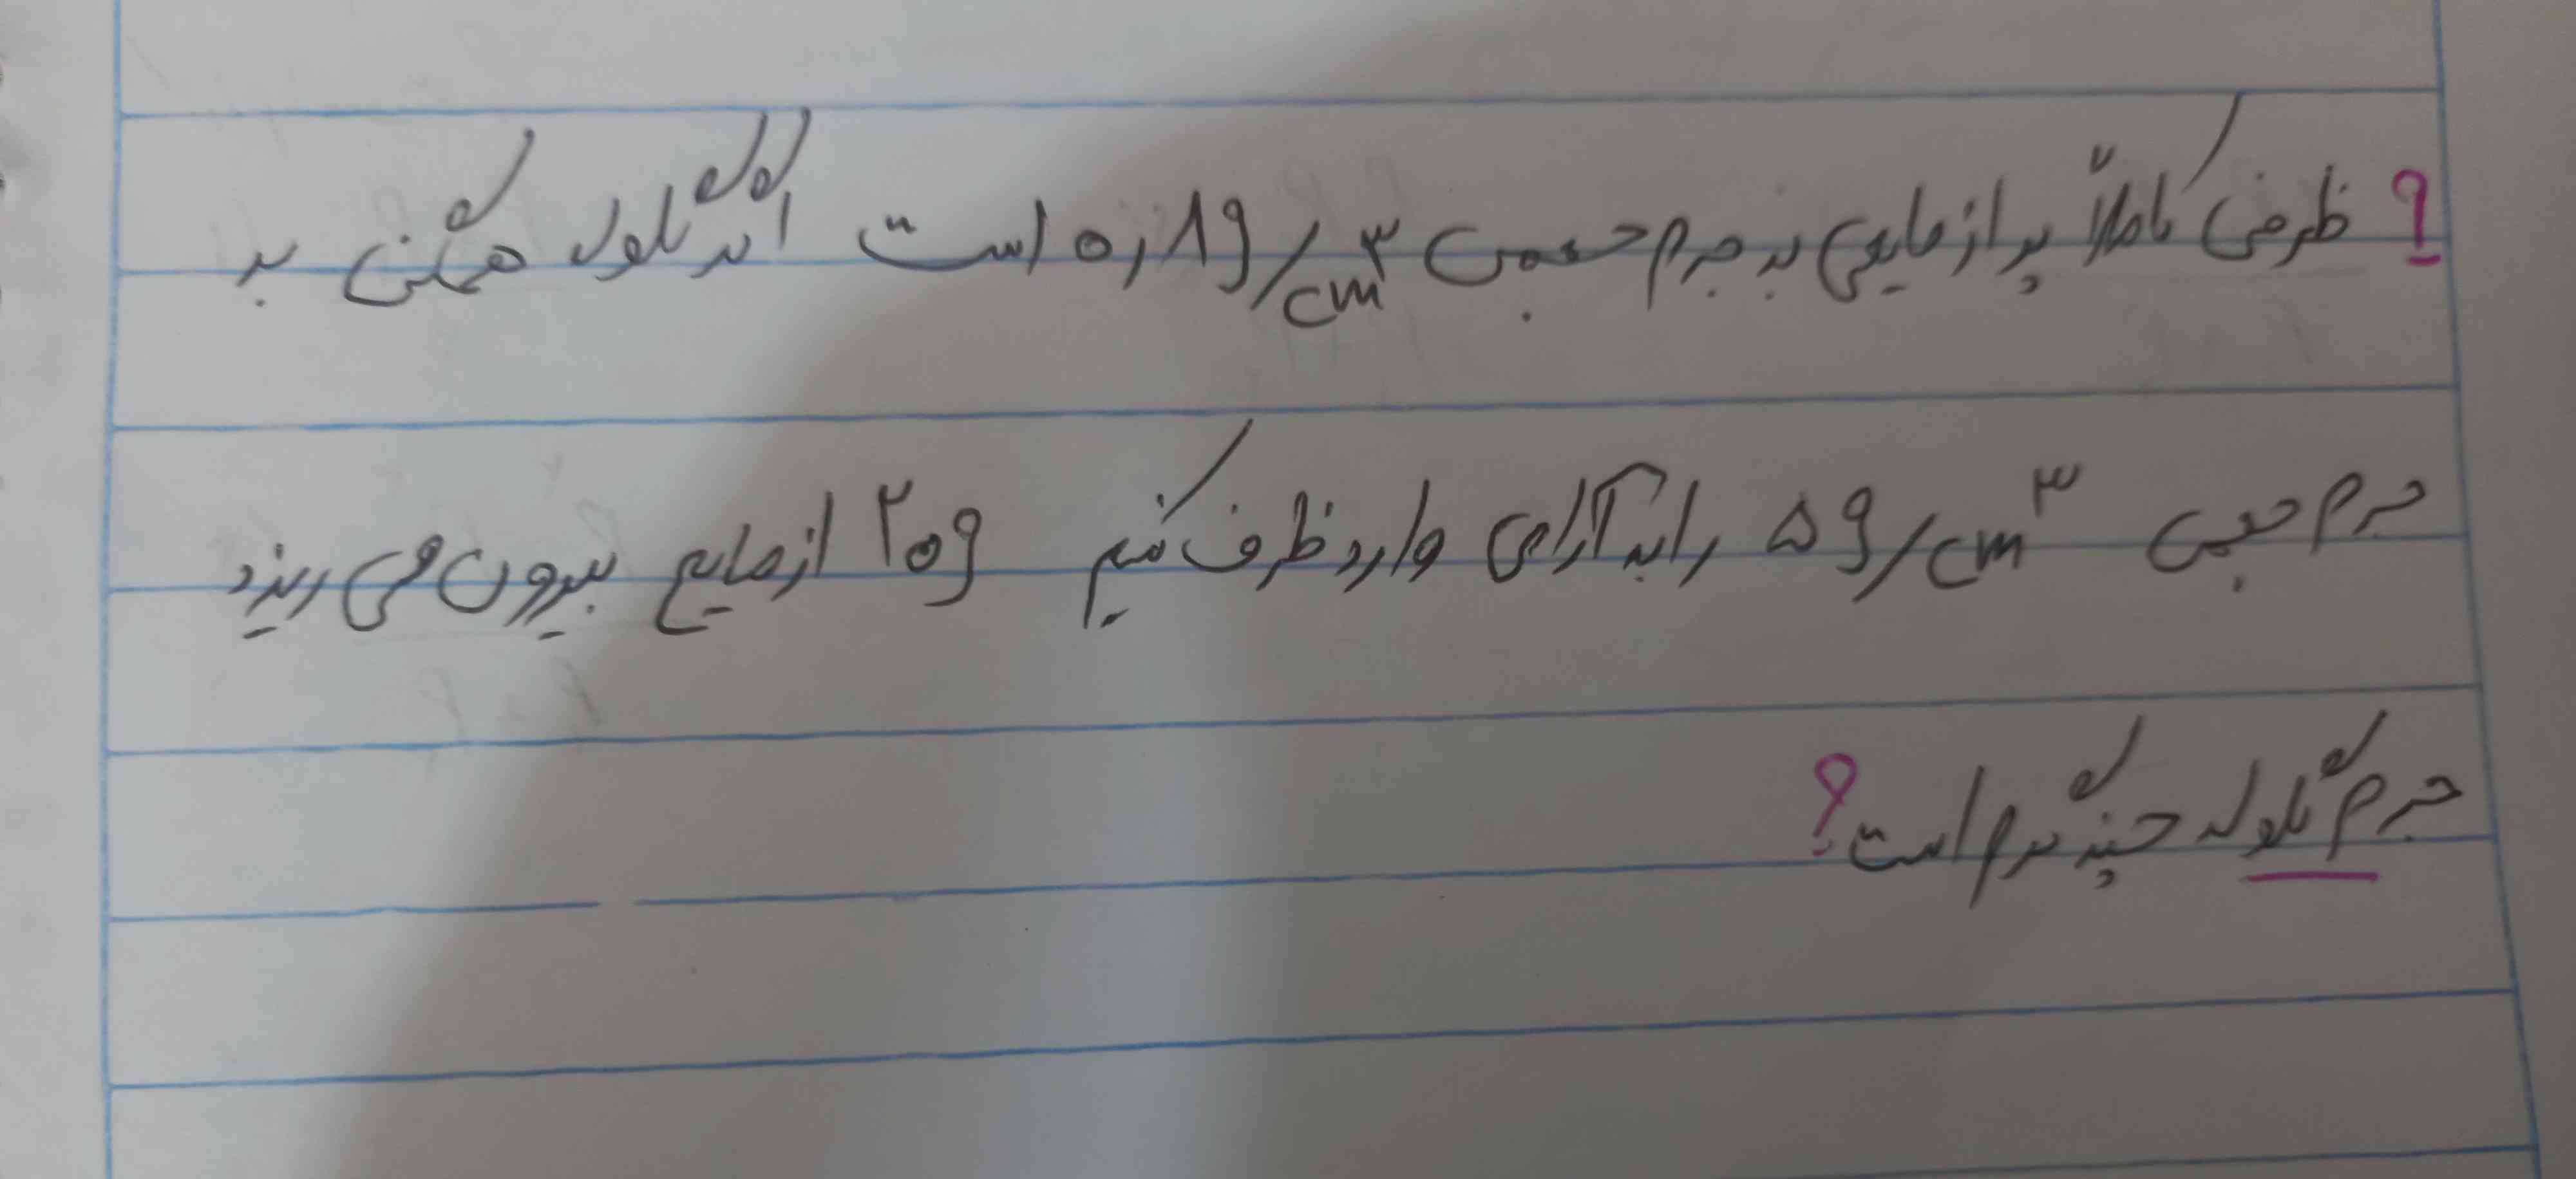 ؟ ظرفی کاملاً پر از مایعی به جرم حجمی ۰٫۸g/cm۳ است اگر گلوله همگنی به
جرم حجمی ۵g/cm۳ را به آرامی وارد ظرف کنیم ۲۰g از مایع بیرون می ریزد
جرم گلوله چند گرم است؟